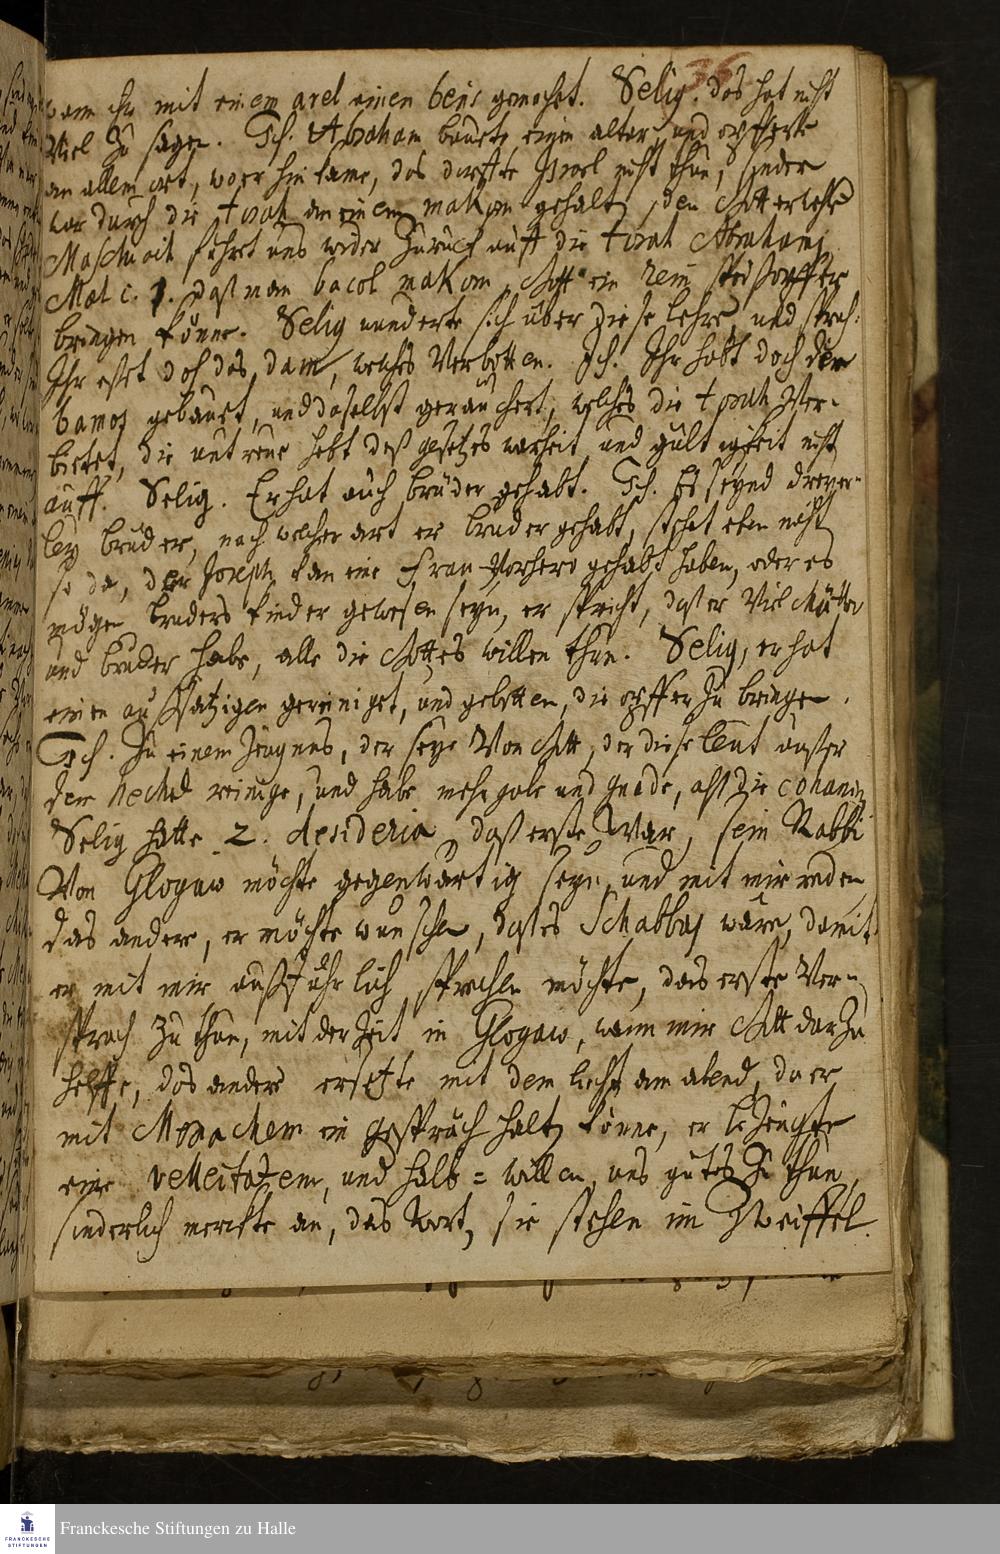 36
wann ihr mit einem arel einen beris gemachet. Selig. das hat nicht
Viel zu sagen. Ich. Abraham bauete einen altar, und opfferte
an allem ort, wo er hin kame, das durffte Israel nicht thun, sonder
war durch die torah an einem makom gehalten, den Gott erwehlt
Maschiach führet uns wider zuruck auff die torah Abrahams
Mal. c. 1. daß man bacol makom, Gott ein rein speißopffer
bringen könne. Selig wunderte sich über diese lehre, und sprach:
Ihr esset doch das dam, welches Verbotten. Ich. Ihr habt doch den
bamos gebauet, und daselbst geräuchert, welches die torah Ver-
bietet, die untreue hebt deß gesetzes warheit, und gültigkeit nicht
auff. Selig. Er hat auch brüder gehabt. Ich. Es seynd dreyer-
ley brüder, nach welcher art er bruder gehabt, stehet eben nicht
so da, der Joseph kan eine Frau Vorhero gehabt haben, oder es
mögen bruders kinder gewesen seyn, er spricht, daß er Viel Mütter
und brüder habe, alle die Gottes willen thun. Selig, er hat
einen aussätzigen gereiniget, und gebotten, die opffer zu bringen.
Ich. Zu einem Zeugnus, der seye Von Gott, der diese leut ausser
dem hechel reinige, und habe mehr gabe und gnade, alß die cohanim
Selig hatte 2. desideria, daß erste war, sein Rabbi
Von Glogaw möchte gegenwärtig seyn, und mit mir reden
das andere, er möchte wunschen, daß es Schabbas wäre, damit
er mit mir außführlich sprechen möchte, das erste Ver-
sprach zu thun, mit der Zeit in Glogaw, wann mir Gott darzu
helffe, das andere ersetzte mit dem licht am abend, da er
mit Menachem ein gespräch halten könne, er bezeugte
eine velleitatem, und halb = willen, uns gutes zu thun,
sinderlich merckte an, das Wort, sie stehen im Zweiffel.
FRANCKESCHE
STIFTUNGEN
Franckesche Stiftungen zu Halle